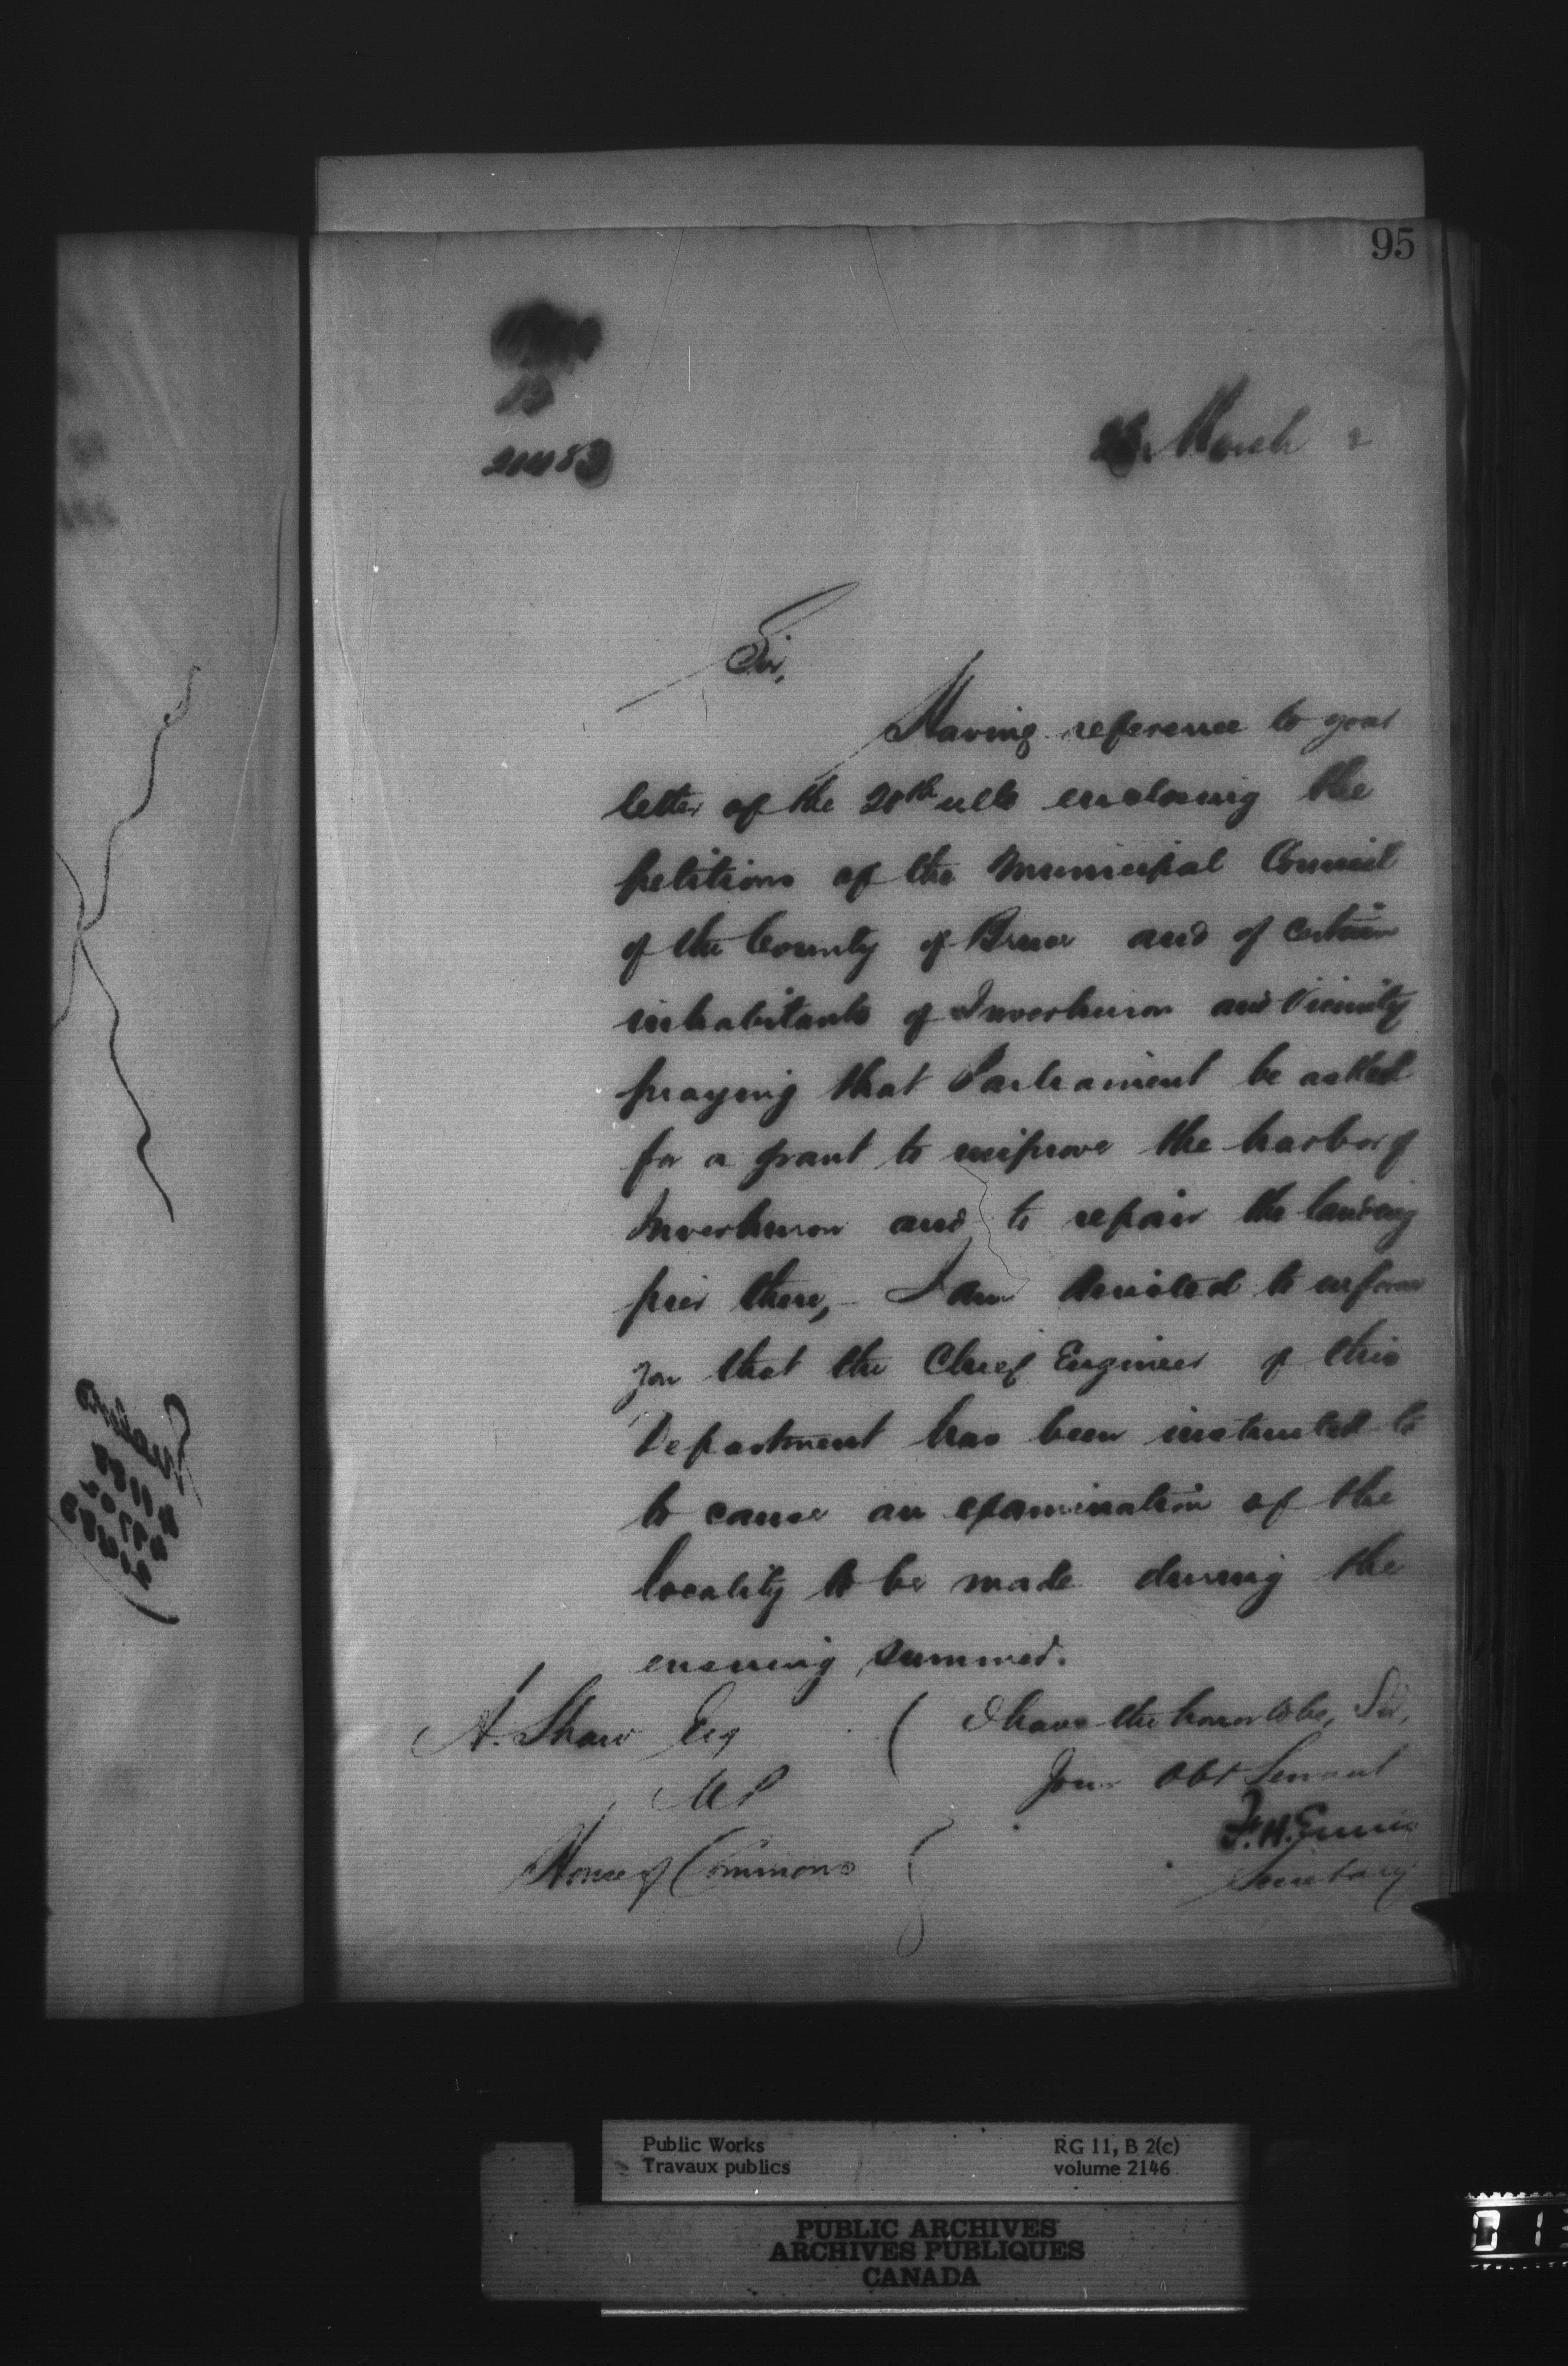 95
March 2
Sir,
Having reference to your
letter of the 20th ulto enclosing the
petitions of the Municipal Council
of the County of Bruce and of certain
inhabitants of Inverhuron and Vicinity
praying that Parliament be asked
for a grant to improve the harbor of
Inverhuron and to repair the landing
pier there, - I am directed to inform
you that the Chief Engineer of this
Department has been instructed to
to cause an examination of the
locality to be made during the
ensuing summer.
I have the honor to be, Sir,
Your Obt Servant
F. H. Ennis
Secretary
A. Shaw Esq
MP
House of Commons
Public Works
Travaux publics
RG 11, B 2(c)
volume 2146
PUBLIC ARCHIVES
ARCHIVES PUBLIQUES
CANADA